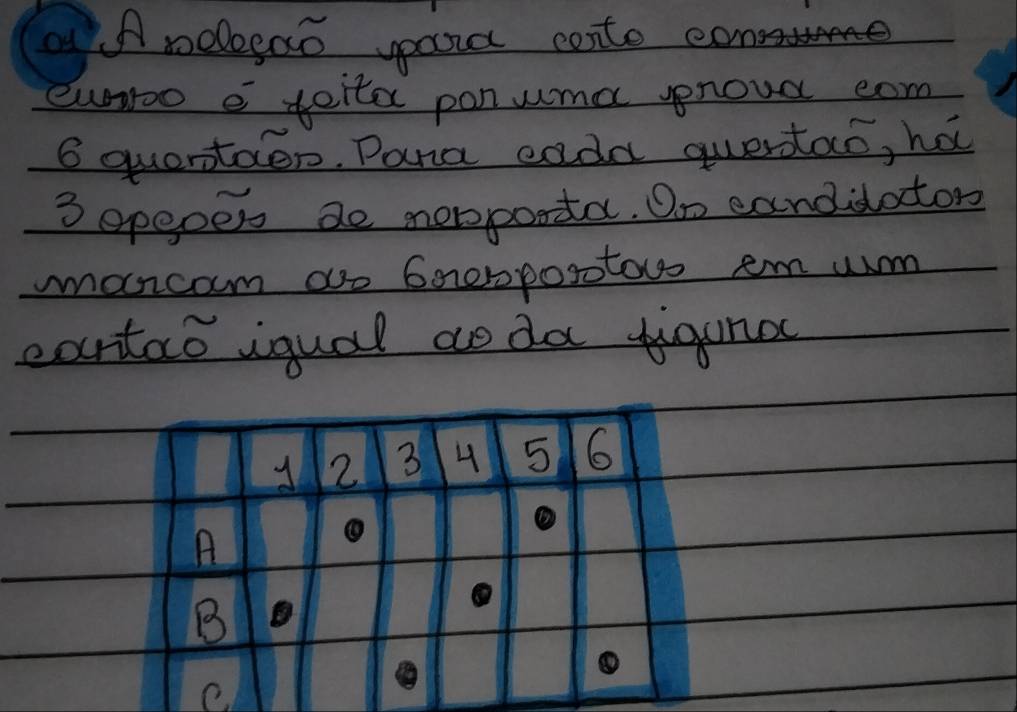 01 A seleção para certo
curso é feita por uma prova com
6 questões. Para cada questão, há
3 opções de resposta. Os candidatos
marcam as 6 respostas em um
cartão igual ao da figura
1 2 3 4 5 6
A
B
C